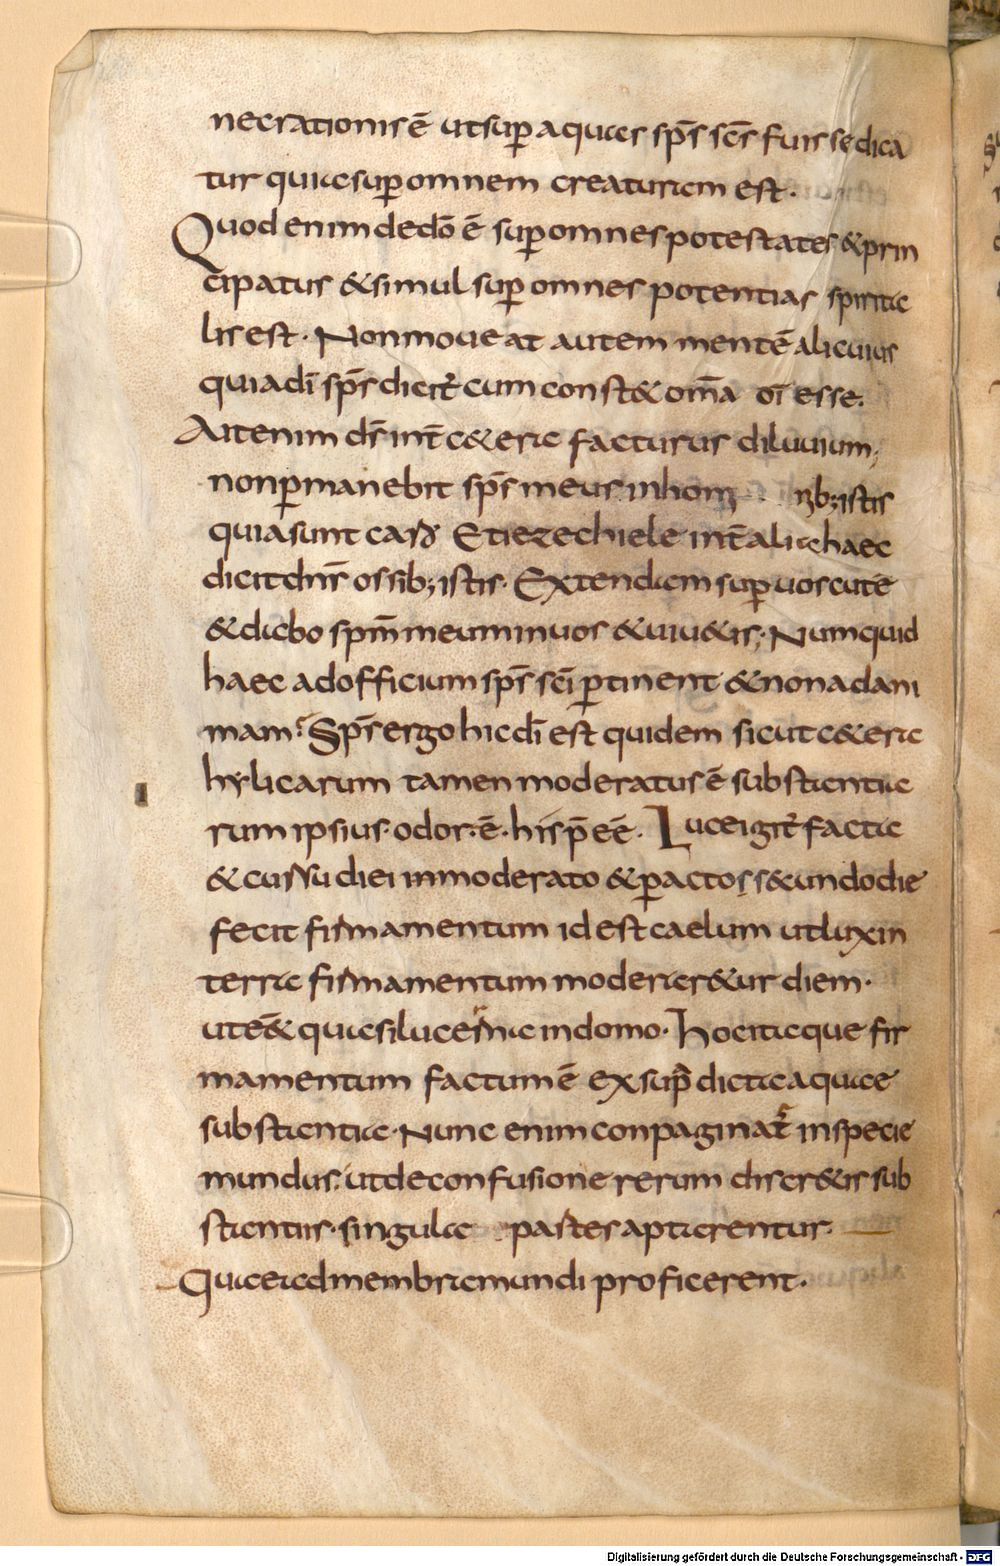 nec rationis ē ut sup̱ aquas sp̄s sc̄s fuisse dica
tur quia sup̱ omnem creaturam est.
Quod enim de dō ē sup̱ omnes potestates & prin
cipatus & simul sup̱ omnes potentias spirita
lis est. Non moueat autem mentē alicuius
quia dī sp̄s dicit̄ cum const& om̄a dī esse.
Ait enim d̄s int̄ c&era facturus diluuium;
non p̱manebit sp̄s meus in hom nib; istis
quia sunt caro Et iezechiele int̄ alia haec
dicit dn̄s ossib; istis. Extendam sup̱ uos cutē
& dabo sp̄m meum in uos & uiu&is; Numquid
haec ad officium sp̄s sc̄i p̱tinent & non ad ani
mam? Sp̄s ergo hic dī est quidem sicut c&era
hylicarum tamen moderatus ē substantia
rum ipsius. odor. ē. hisp̄eē. Luce igit̄ facta
& cursu diei inmoderato & p̱acto s&undo die
fecit firmamentum id est caelum ut lux in
terra firmamentum moderar&ur diem.
ut ē& quasi lucerna in domo. Hoc itaque fir
mamentum factum ē ex sup̄ dicta aquae
substantia. Nunc enim conpaginat̄ in specie
mundus. ut de confusione rerum discr&is sub
stantiis. singulae partes aptarentur.
Quae ad membra mundi proficerent.
Digitalisierung gefördert durch die Deutsche Forschungsgemeinschaft - DFG